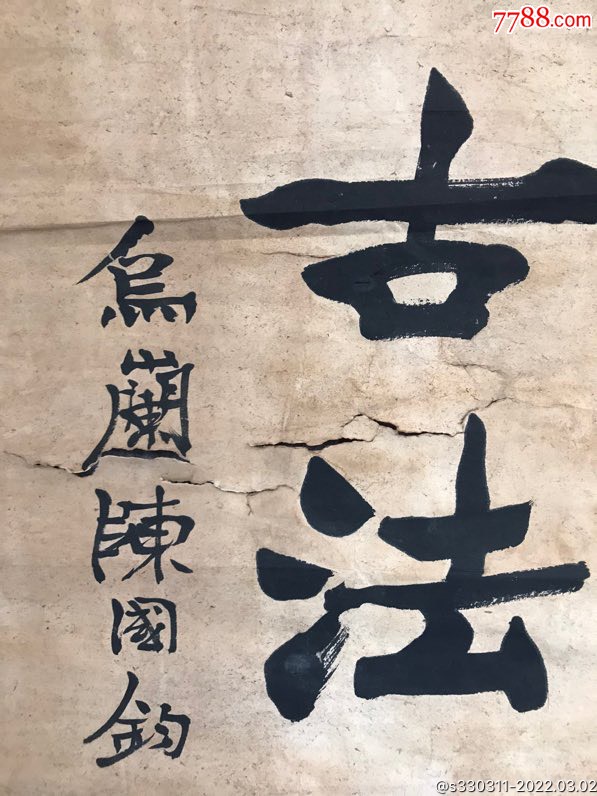 7788.com
古法
烏蘭陳國鈞
@s330311-2022.03.02